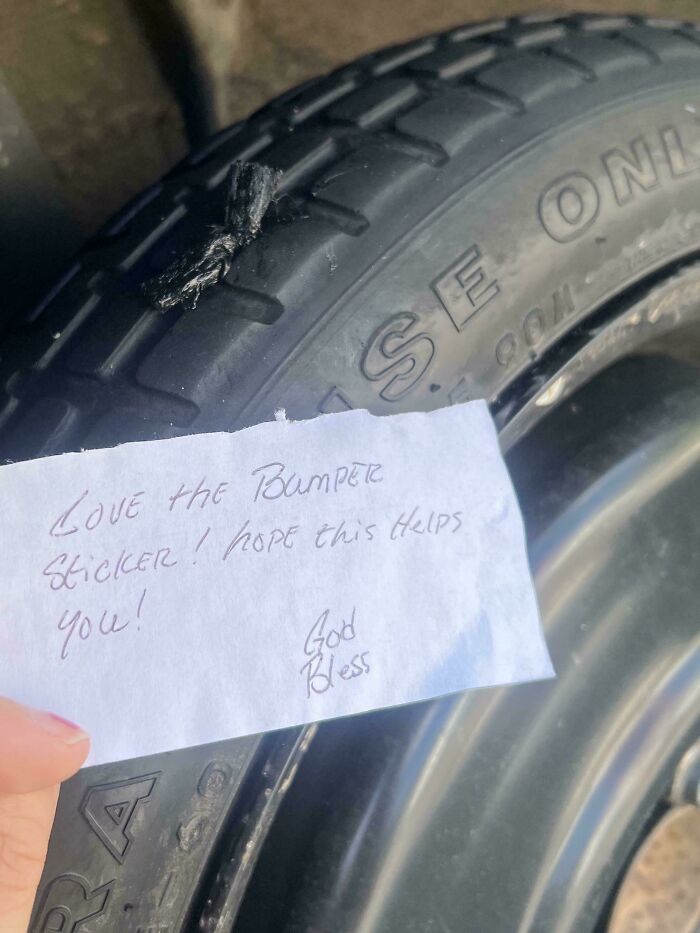 USE ONL
Love the Bumper
Sticker! hope this Helps
you!
God
Bless
RA